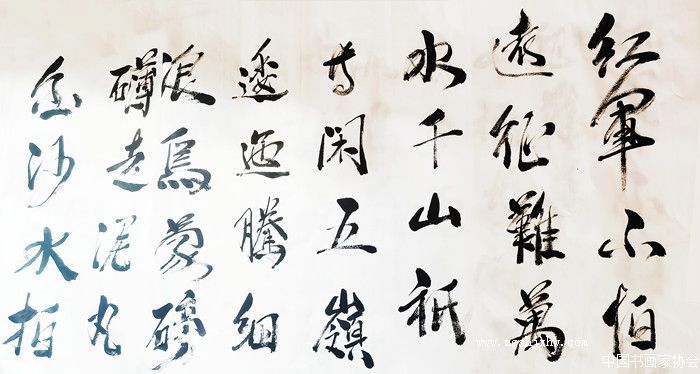 紅軍不怕
遠征難萬
水千山祇
等閑五嶺
逶迤騰細
浪烏蒙磅
礴走泥丸
金沙水拍
www.zgshjxhy.com
中国书画家协会